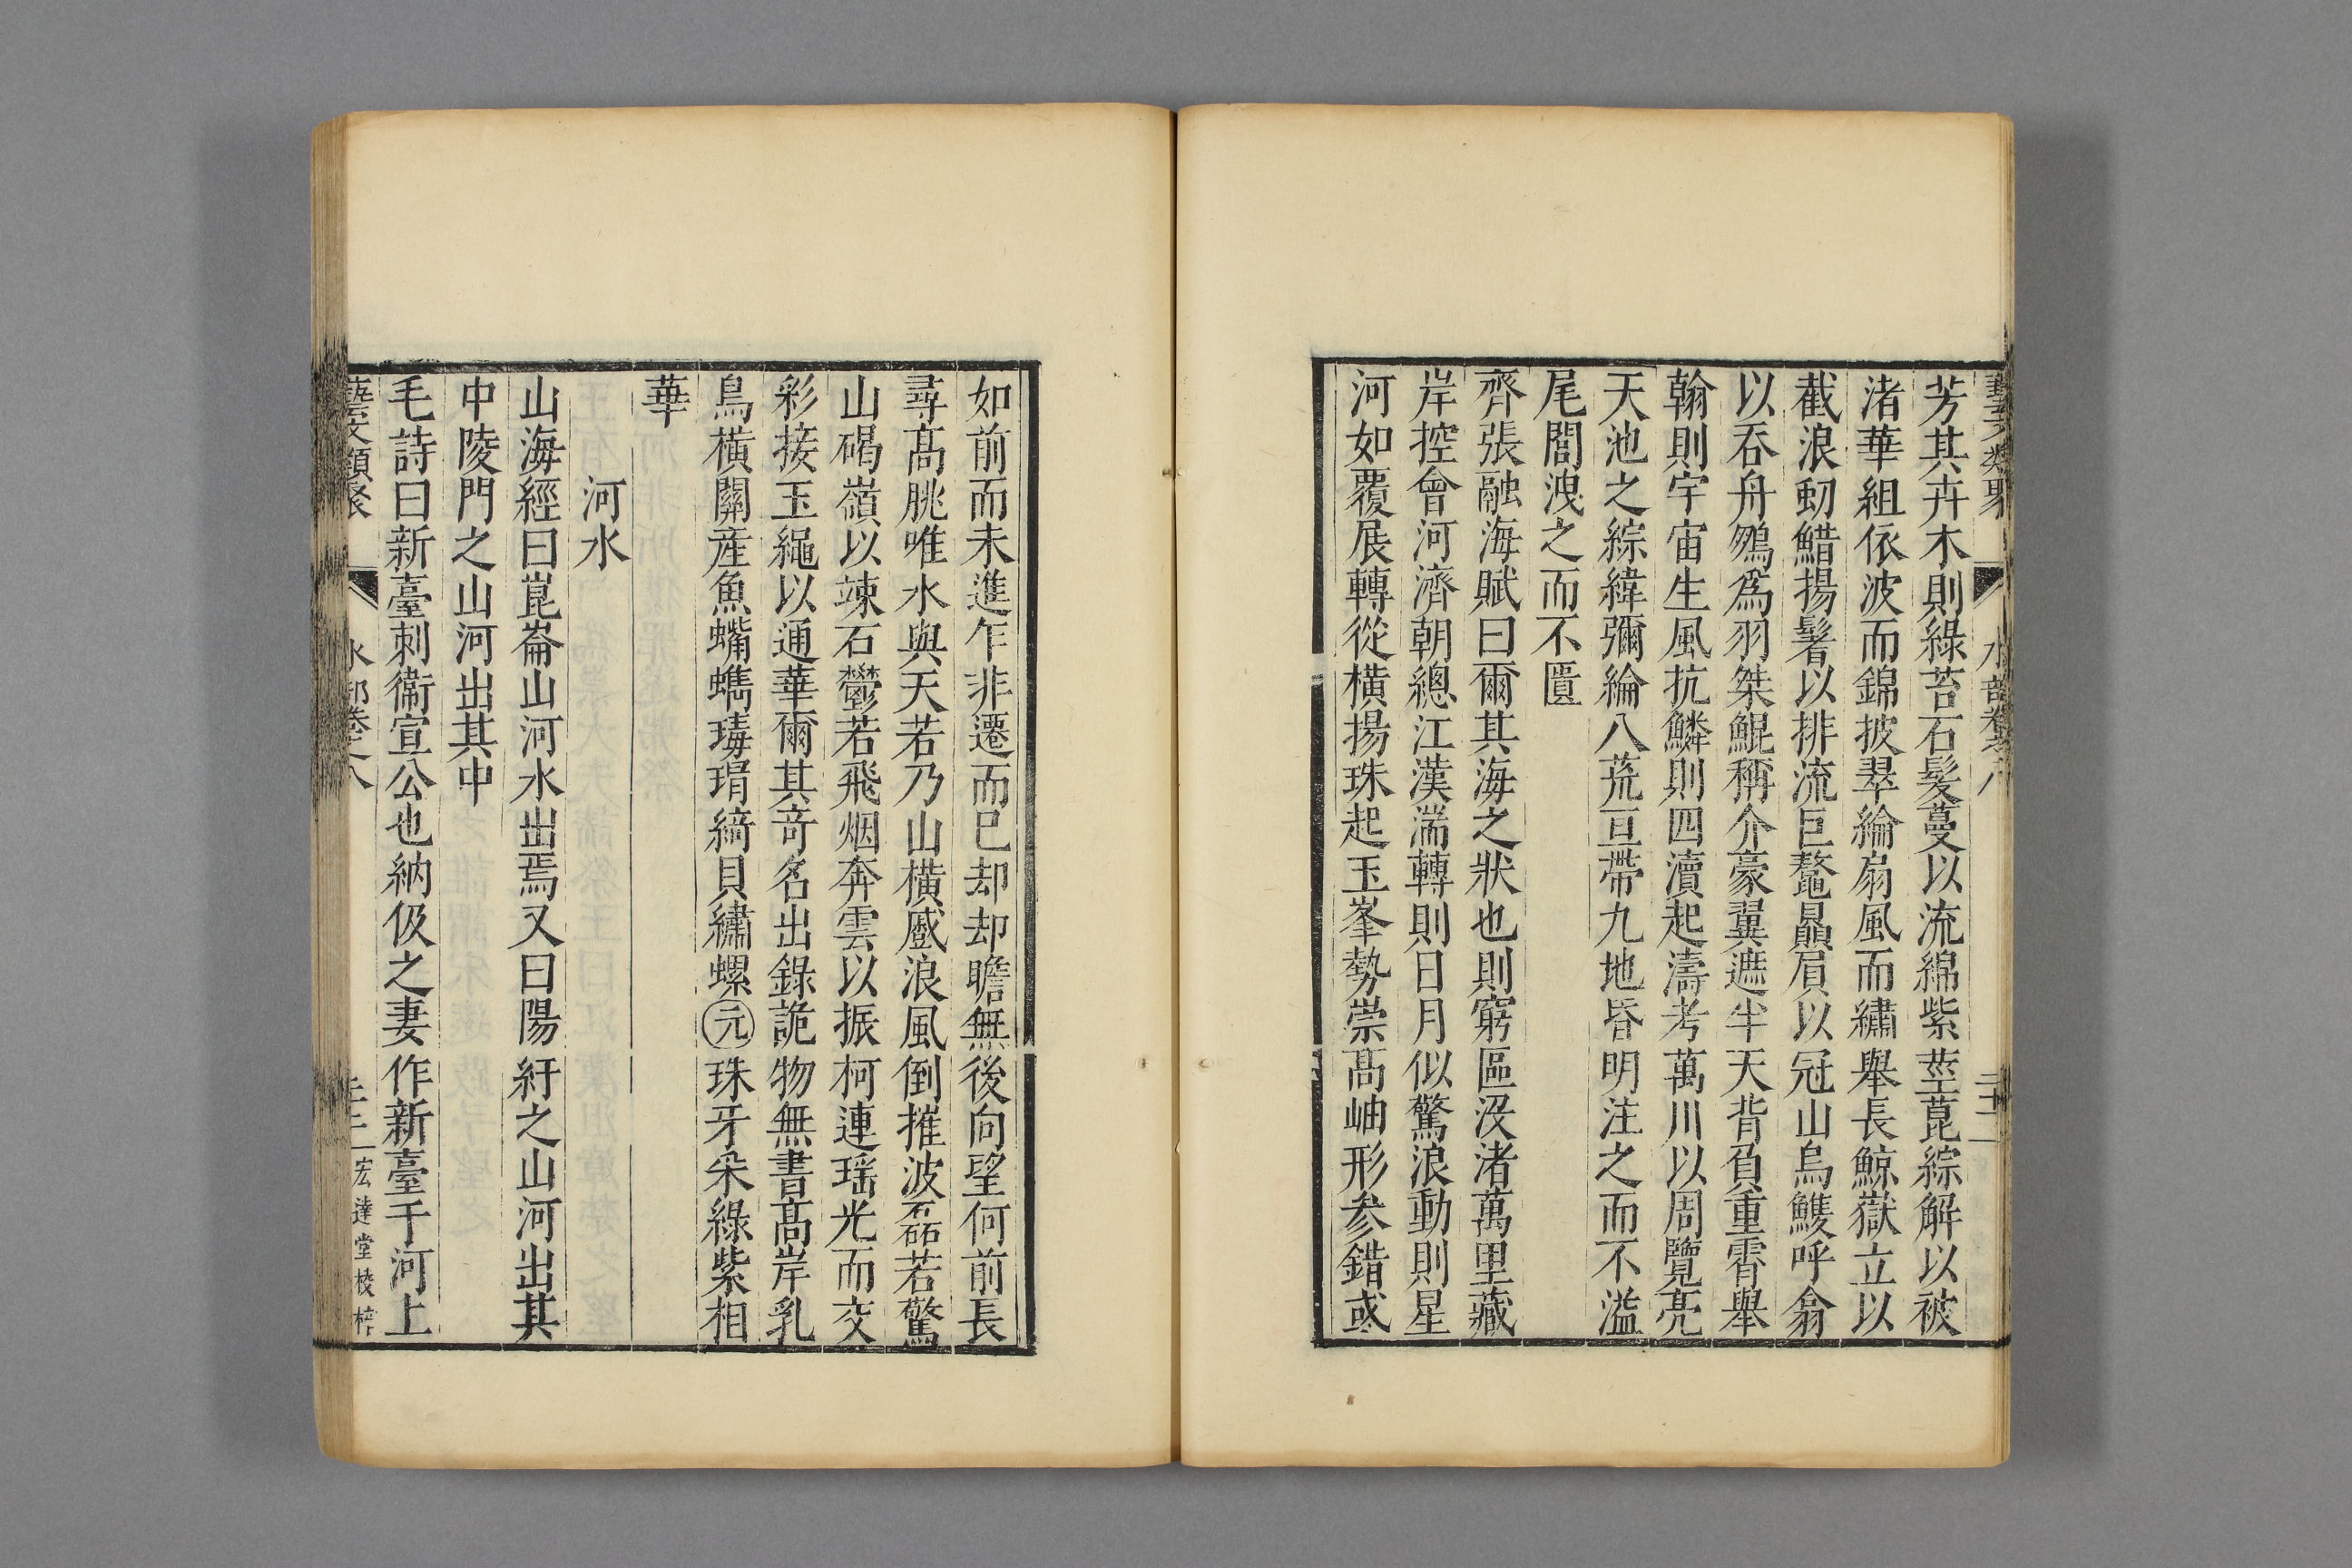 藝文類聚 水部卷八 二十二
芳其卉木則綠苔石髮蔓以流綿紫莖菎綜解以被
渚華組依波而錦披翠綸扇風而繡舉長鯨嶽立以
截浪虭鯌揚鬐以排流巨鼇贔屓以冠山鳥鱯呼翕
以吞舟鴢為羽桀鯤稱介豪翼遮半天背負重霄舉
翰則宇宙生風抗鱗則四瀆起濤考萬川以周覽亮
天池之綜緯彌綸八荒亘帶九地昏明注之而不溢
尾閭洩之而不匱
齊張融海賦曰爾其海之狀也則窮區沒渚萬里藏
岸控會河濟朝總江漢湍轉則日月似驚浪動則星
河如覆展轉從橫揚珠起玉峯勢崇髙岫形参錯或
如前而未進乍非遷而已却却瞻無後向望何前長
尋髙眺唯水與天若乃山橫蹙浪風倒摧波磊若驚
山碣嶺以竦石鬱若飛烟奔雲以振柯連瑶光而交
彩接玉繩以通華爾其竒名出錄詭物無書髙岸乳
鳥橫關産魚蠵䗪瑇瑁綺貝繡螺元珠牙朵綠紫相
華
河水
山海經曰崑崙山河水出焉又曰陽紆之山河出其
中陵門之山河出其中
毛詩曰新臺刺衞宣公也納伋之妻作新臺于河上
藝文類聚 水部卷之八 二十二 宏達堂校梓